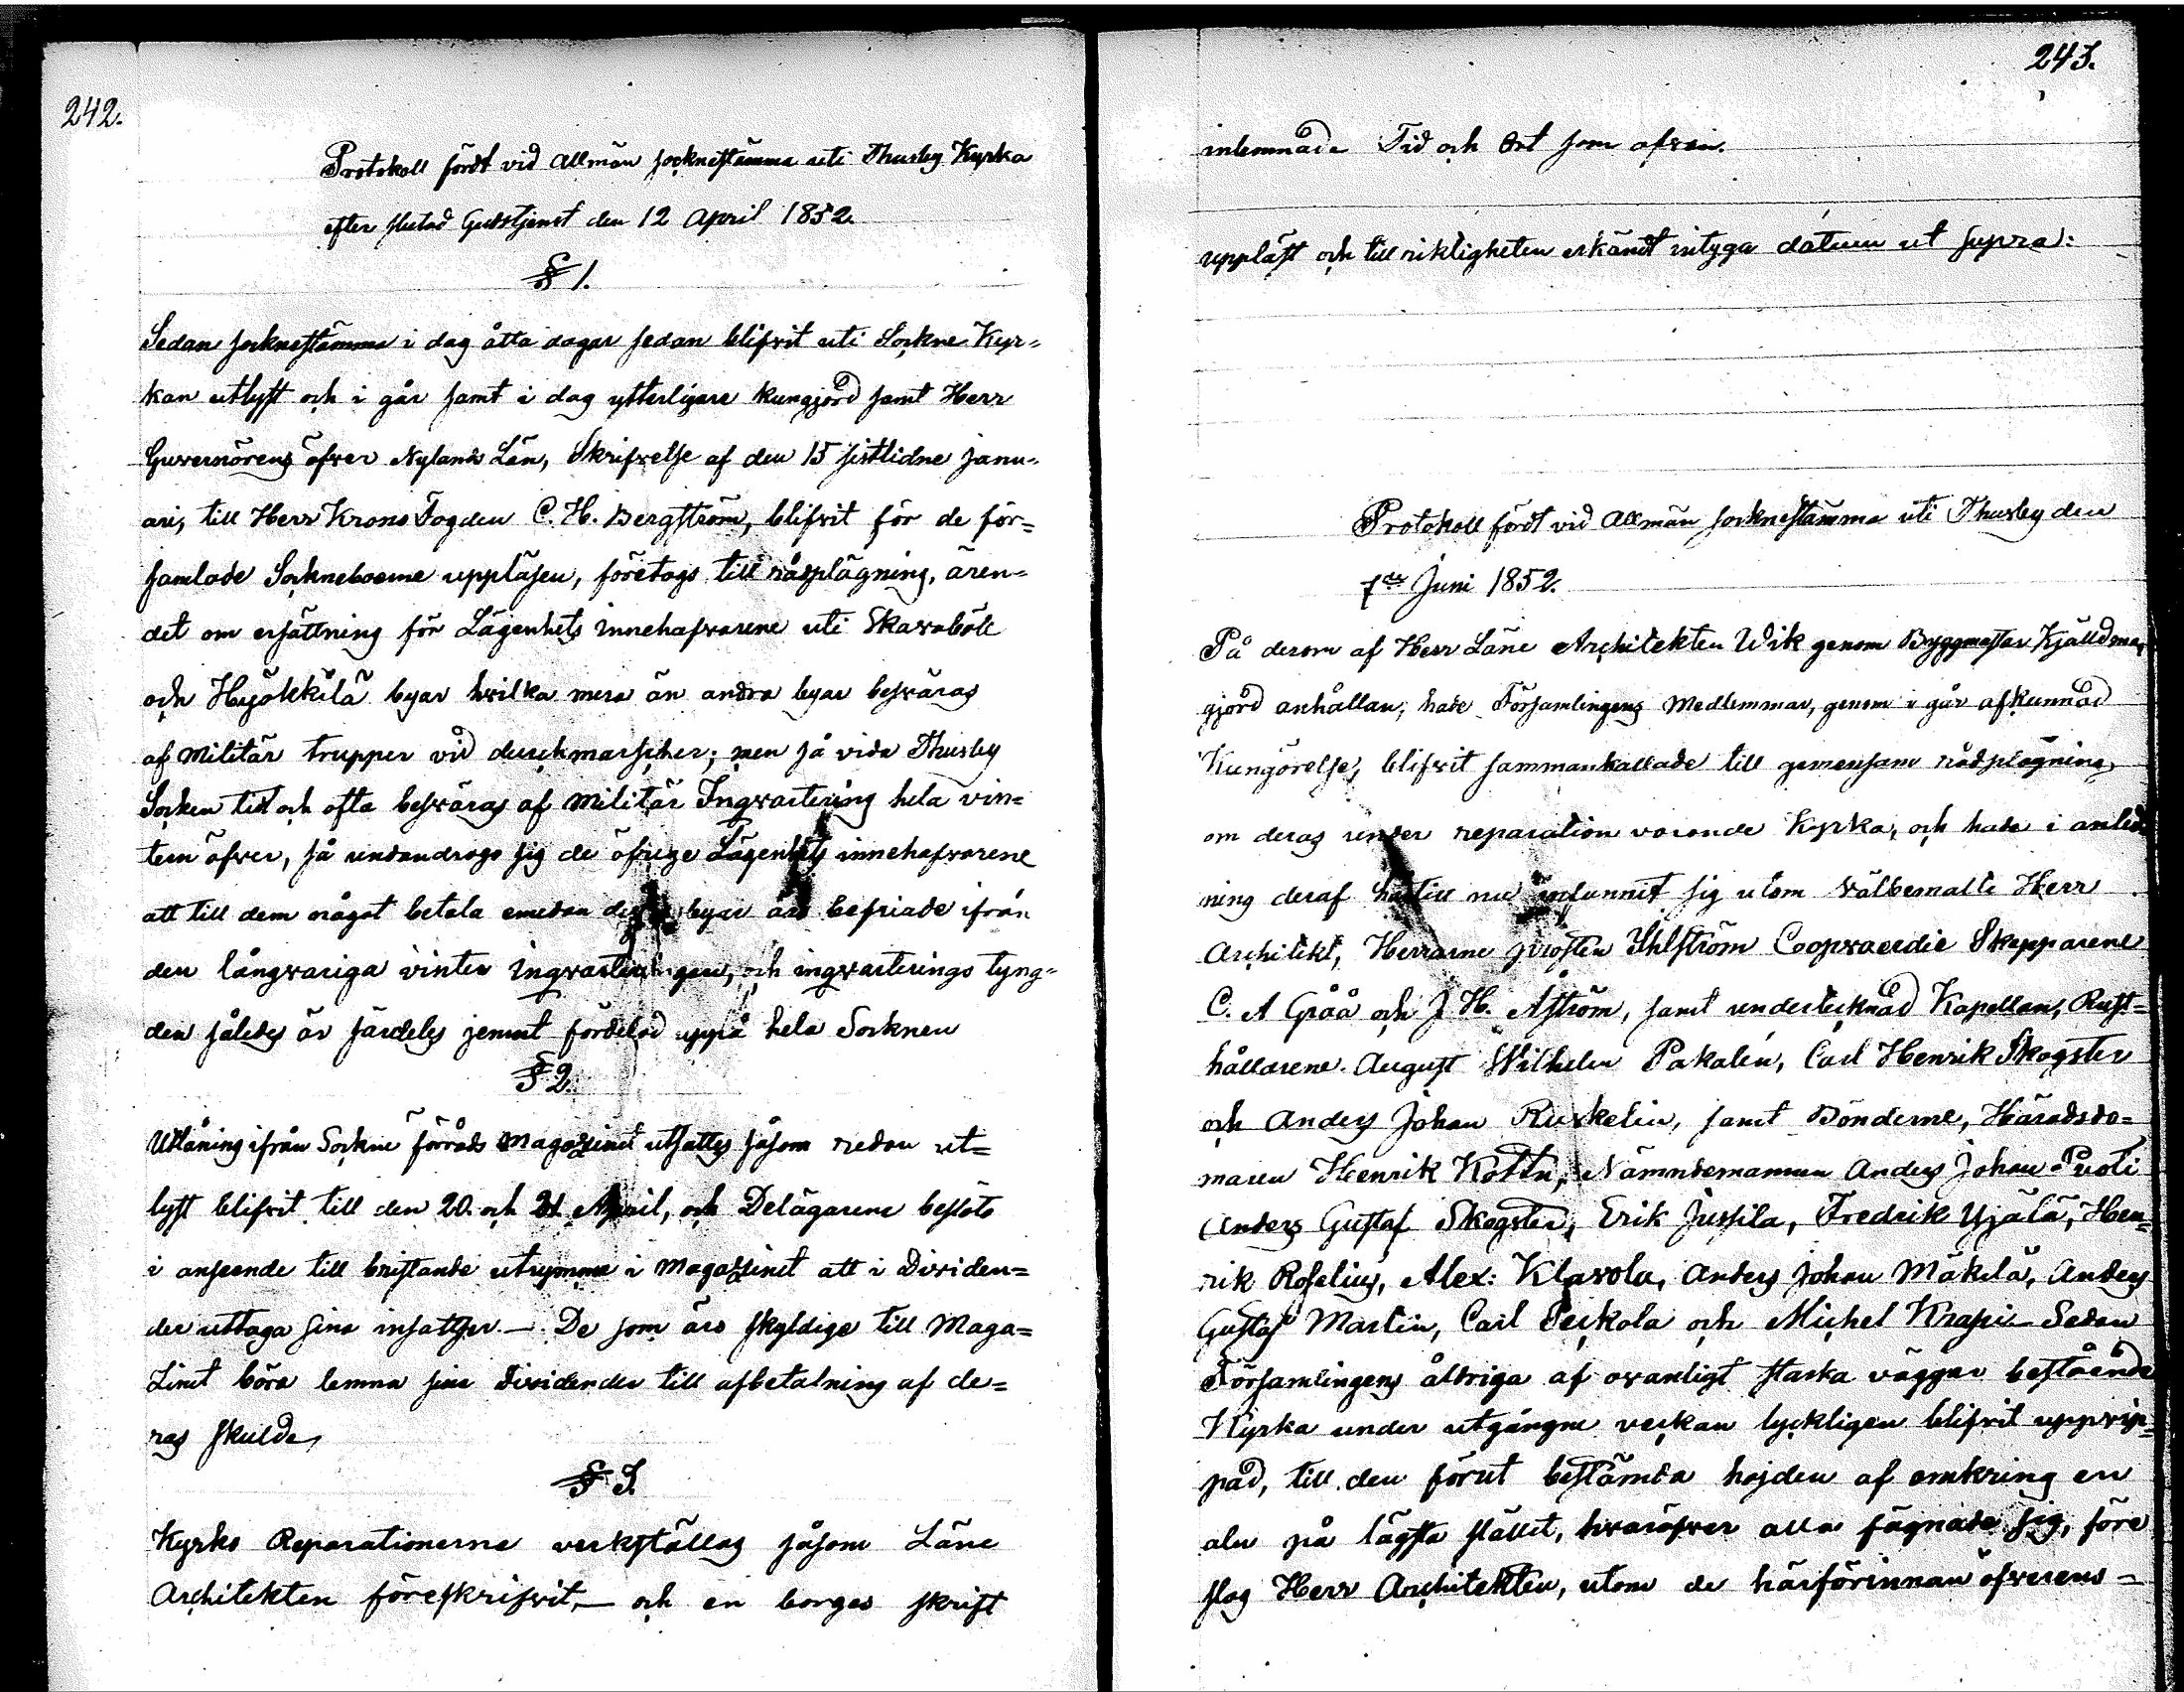 242.
Protokoll fördt vid Allmän sockneftämma uti Thusby Kyrka
efter slutad Gudstjenst den 12 April 1852.
§ 1.
Sedan socknestämma i dag åtta dagar sedan blifvit uti Sockne Kyr=
kan utlyst och i går samt i dag ytterligare kungjord samt Herr
Guvernörens öfver Nylands Län, Skrifvelse af den 15 sistlidne Janu=
ari, till Herr Krono Fogden C. H. Bergström, blifvit för de för=
samlade Sockneboerne uppläsen, företogs till rådplägning, ären=
det om ersättning för Lägenhets innehafvarene uti Skavaböle
och Hyökkälä byar hvilka mera än andra byar besväras
af Militär trupper vid durchmarscher; men så vida Thusby
Socken tid och ofta besväras af Militär Inqvartering hela vin=
tern öfver, så undandrogo sig de öfrige Lägenhets innehafvarene
att till dem något betala emedan dessa byar äro befriade ifrån
den långvariga vinter inqvarteringen, och inqvarterings tyng=
den således är särdeles jemnt fördelad uppå hela Socknen
§ 2.
Utlåning ifrån Sockne förråds Magazinet utsattes såsom redan ut=
lyst blifvit till den 20. och 21. April, och Delägarene beslöto
i anseende till bristande utrymme i Magazinet att i Dividen=
der uttaga sina insatser. — De som äro skyldige till Maga=
zinet böra lemna sina Dividender till afbetalning af de=
ras skulde,
§ 3.
Kyrko Reparationerne verkställas såsom Läne
Architekten föreskrifvit, — och en borges skrift
243.
inlemnade Tid och Ort som ofvan.
uppläst och till riktigheten erkändt intyga datum ut supra:
Protokoll fördt vid Allmän socknestämma uti Thusby den
7de Juni 1852.
På derom af Herr Läne Architekten Wik genom Byggmästar Kjälldman
gjord anhållan, hade Församlingens Medlemmar, genom i går afkunnad
Kungörelse, blifvit sammankallade till gemensam rådplägning,
om deras under reparation varande Kyrka, och hade i anled
ning deraf härtill nu infunnit sig utom Välbemälte Herr
Architekt, Herrarne prosten Ihlström Coopvaerdie Skepparene
C. A Gråå och J H. Åström, samt undertecknad Kapellan, Rust=
hållarene August Wilhelm Pakalén, Carl Henrik Skogster
och Anders Johan Ruskelin, samt Bönderne, Häradsdo=
maren Henrik Kottn, Nämndemannen Anders Johan Puoti
Anders Gustaf Skogster, Erik Jussila, Fredrik Yjälä, Hen=
rik Roselius, Alex: Klavola, Anders Johan Mäkelä, Anders
Gustaf Martin, Carl Peckola och Michel Krapi — Sedan
Församlingens åldriga af ovanligt starka väggar bestående
Kyrka under utgångne veckan lyckligen blifvit uppvip=
pad, till den förut bestämda höjden af omkring en
aln på lägsta stället, hvaröfver alla fägnade sig, före
slog Herr Architekten, utom de härförinnan öfverens=